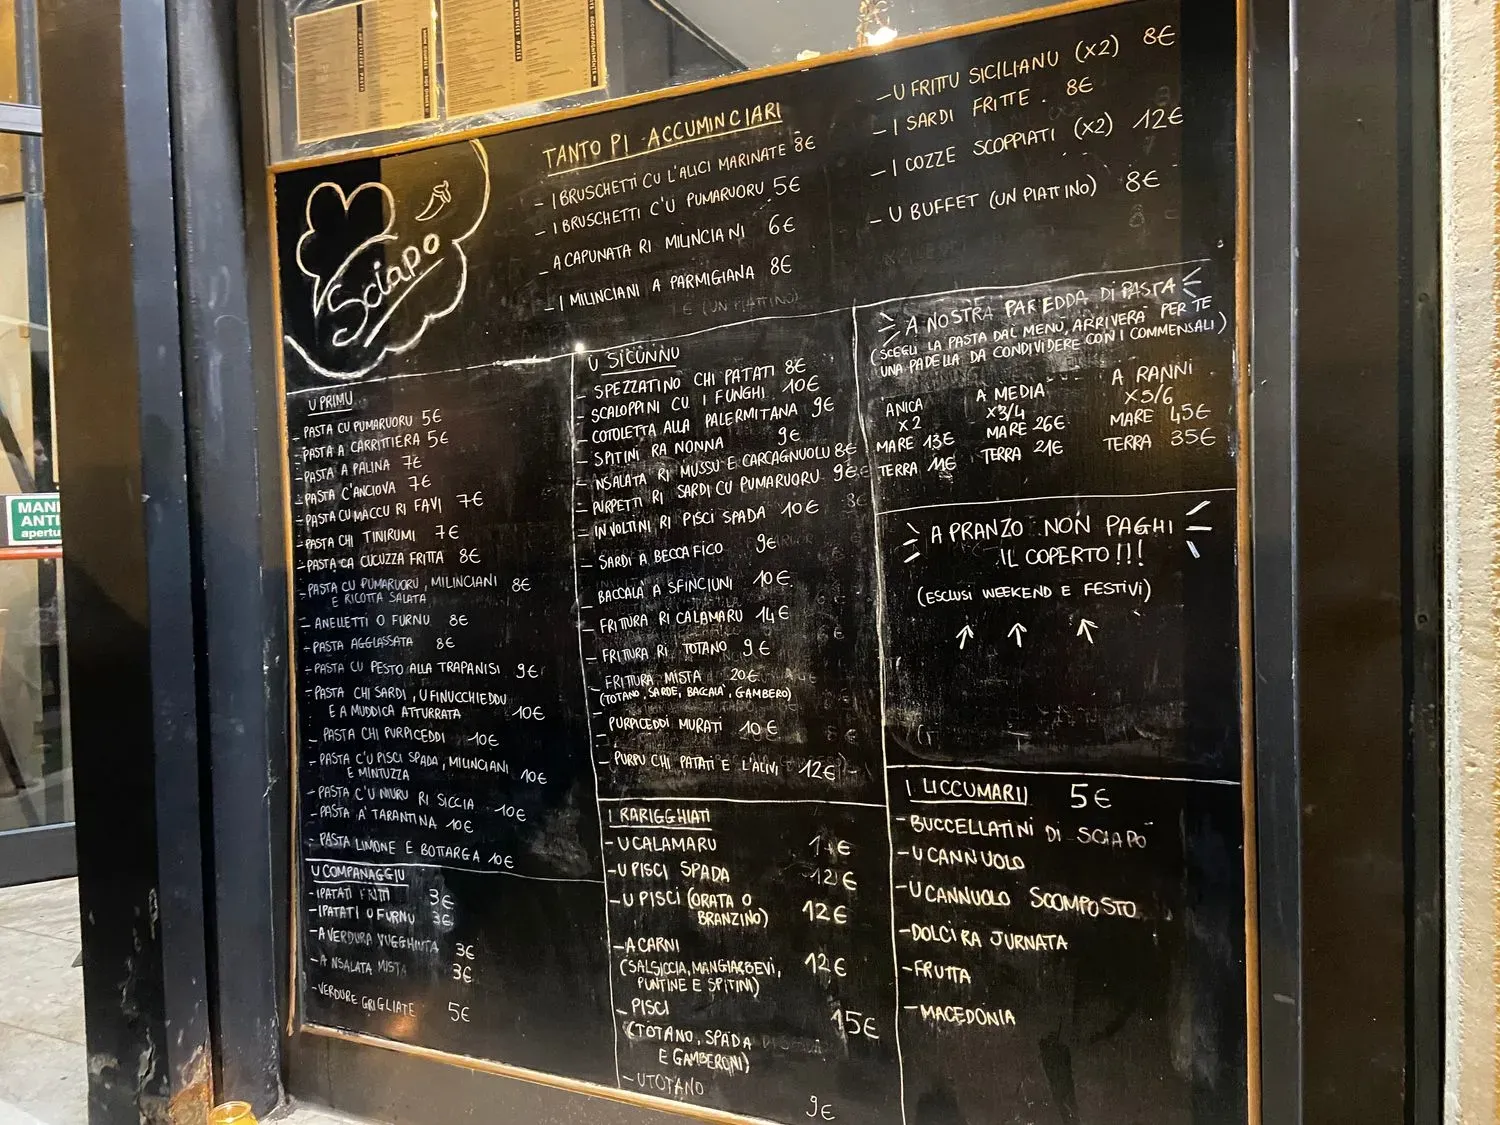 Sciapo
TANTO PI ACCUMINCIARI
- I BRUSCHETTI CU L'ALICI MARINATE 8€
- I BRUSCHETTI C'U PUMARUORU 5€
- A CAPUNATA RI MILINCIANI 6€
- I MILINCIANI A PARMIGIANA 8€
€ (UN PIATTINO)
- U FRITTU SICILIANU (X2) 8€
- I SARDI FRITTE. 8€
- I COZZE SCOPPIATI (X2) 12€
- U BUFFET (UN PIATTINO) 8€
U PRIMU
- PASTA CU PUMARUORU 5€
- PASTA A CARRITTIERA 5€
- PASTA A PALINA 7€
- PASTA C'ANCIOVA 7€
- PASTA CU MACCU RI FAVI 7€
- PASTA CHI TINIRUMI 7€
- PASTA CA CUCUZZA FRITTA 8€
- PASTA CU PUMARUORU, MILINCIANI 8€
E RICOTTA SALATA
- ANELLETTI O FURNU 8€
- PASTA AGGLASSATA 8€
- PASTA CU PESTO ALLA TRAPANISI 9€
- PASTA CHI SARDI, U FINUCCHIEDDU
E A MUDDICA ATTURRATA 10€
- PASTA CHI PURPICEDDI 10€
- PASTA C'U PISCI SPADA, MILINCIANI
E MINTUZZA 10€
- PASTA C'U NIURU RI SICCIA 10€
- PASTA A' TARANTINA 10€
- PASTA LIMONE E BOTTARGA 10€
U COMPANAGGIU
- I PATATI FRITTI 3€
- I PATATI O FURNU 3€
- A VERDURA VUGGHIUTA 3€
- A NSALATA MISTA 3€
- VERDURE GRIGLIATE 5€
U SICUNNU
- SPEZZATINO CHI PATATI 8€
- SCALOPPINI CU I FUNGHI 10€
- COTOLETTA ALLA PALERMITANA 9€
- SPITINI RA NONNA 9€
- NSALATA RI MUSSU E CARCAGNUOLU 8€
- PURPETTI RI SARDI CU PUMARUORU 9€
- INVOLTINI RI PISCI SPADA 10€
- SARDI A BECCAFICO 9€
- BACCALÀ A SFINCIUNI 10€
- FRITTURA RI CALAMARU 14€
- FRITTURA RI TOTANO 9€
- FRITTURA MISTA 20€
(TOTANO, SARDE, BACCALA', GAMBERO)
- PURPICEDDI MURATI 10€
- PURPU CHI PATATI E L'ALIVI 12€
I RARIGGHIATI
- U CALAMARU
- U PISCI SPADA 12€
- U PISCI (ORATA O
BRANZINO) 12€
- A CARNI
(SALSICCIA, MANGIA&BEVI, 12€
PUNTINE E SPITINI)
- PISCI
(TOTANO, SPADA 15€
E GAMBERONI)
- U TOTANO
9€
A NOSTRA PAREDDA DI PASTA
(SCEGLI LA PASTA DAL MENÙ, ARRIVERÀ PER TE
UNA PADELLA DA CONDIVIDERE CON I COMMENSALI)
ANICA
X2
MARE 13€
TERRA 11€
A MEDIA
X3/4
MARE 26€
TERRA 21€
A RANNI
X5/6
MARE 45€
TERRA 35€
A PRANZO NON PAGHI
IL COPERTO!!!
(ESCLUSI WEEKEND E FESTIVI)
I LICCUMARII 5€
- BUCCELLATINI DI SCIAPÒ
- U CANNUOLO
- U CANNUOLO SCOMPOSTO
- DOLCI RA JURNATA
- FRUTTA
- MACEDONIA
MAN
ANTI
apertu